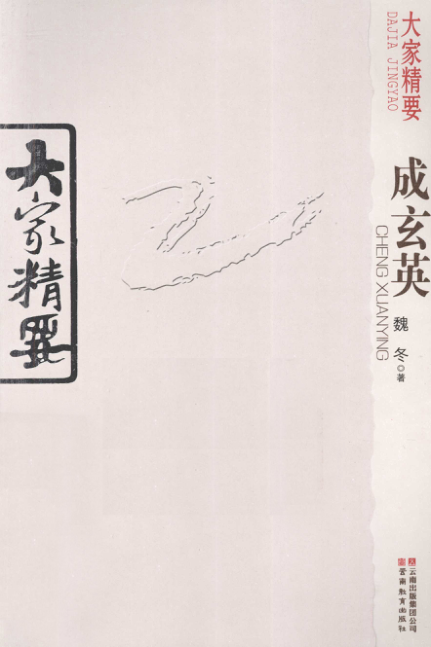 大家精要
DAJIA JINGYAO
成玄英
CHENG XUANYING
魏 冬◎著
大家精要
云南出版集团公司
云南教育出版社